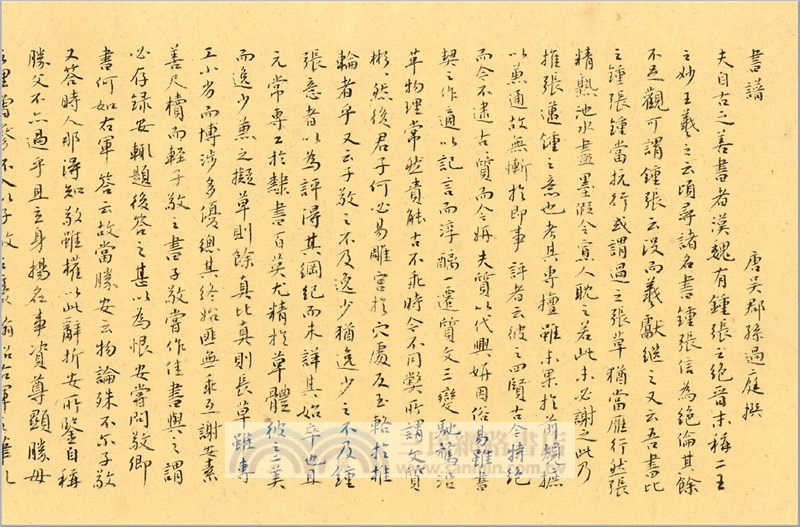 書譜 唐吳郡孫過庭撰
夫自古之善書者漢魏有鍾張之絕晉末稱二王
之妙王羲之云頃尋諸名書鍾張信為絕倫其餘
不足觀可謂鍾張云沒而羲獻繼之又云吾書比
之鍾張鍾當抗行或謂過之張草猶當雁行然張
精熟池水盡墨假令寡人耽之若此未必謝之此乃
推張邁鍾之意也考其專擅雖未果於前規摭
以兼通故無慚於即事評者云彼之四賢古今特絕
而今不逮古質而今妍夫質以代興妍因俗易雖書
契之作適以記言而淳醨一遷質文三變馳鶩沿
革物理常然貴能古不乖時今不同弊所謂文質
彬彬然後君子何必易雕宮於穴處反玉輅於椎
輪者乎又云子敬之不及逸少猶逸少之不及鍾
張意者以為評得其綱紀而未詳其始卒也且
元常專工於隸書百英尤精於草體彼之二美
而逸少兼之擬草則餘真比真則長草雖專
工小劣而博涉多優總其終始匪無乖互謝安素
善尺牘而輕子敬之書子敬嘗作佳書與之謂
必存錄安輒題後答之甚以為恨安嘗問敬卿
書何如右軍答云故當勝安云物論殊不尔子敬
又答時人那得知敬雖權以此辭折安所鑒自稱
勝父不亦過乎且立身揚名事資尊顯勝母
三民網路書店
www.sanmin.com.tw